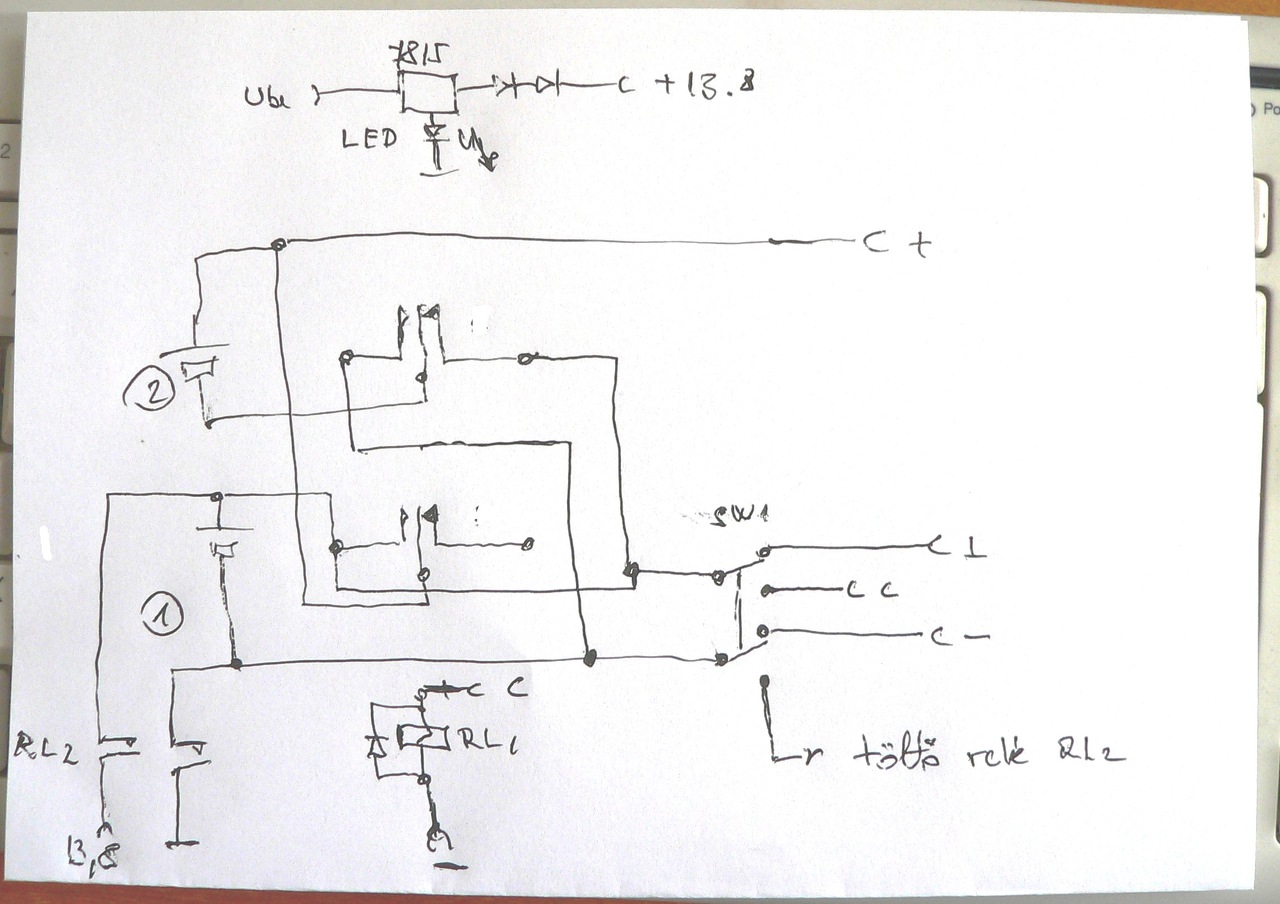 7815
Ube
+13.8
LED
C +
2
SW1
1
C ⊥
C C
C −
C C
RL1
RL2
töltő relé RL2
13,8
−